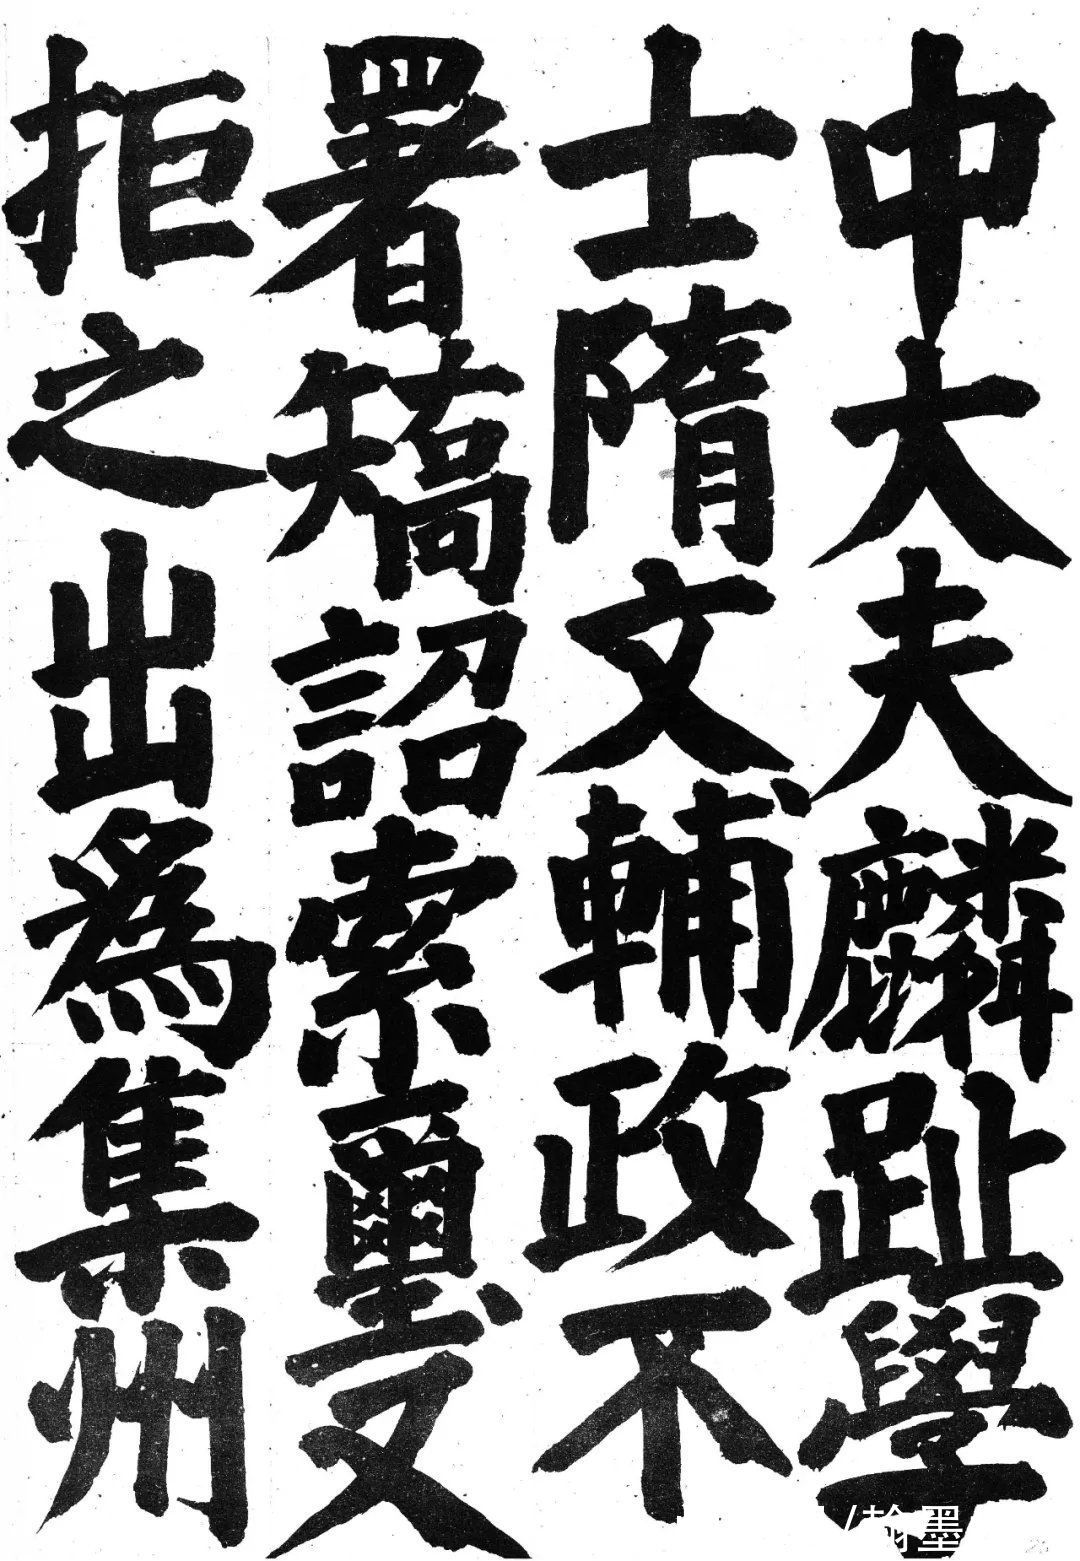 中大夫麟趾學
士隋文輔政不
署矯詔索璽又
拒之出為集州
/翰墨